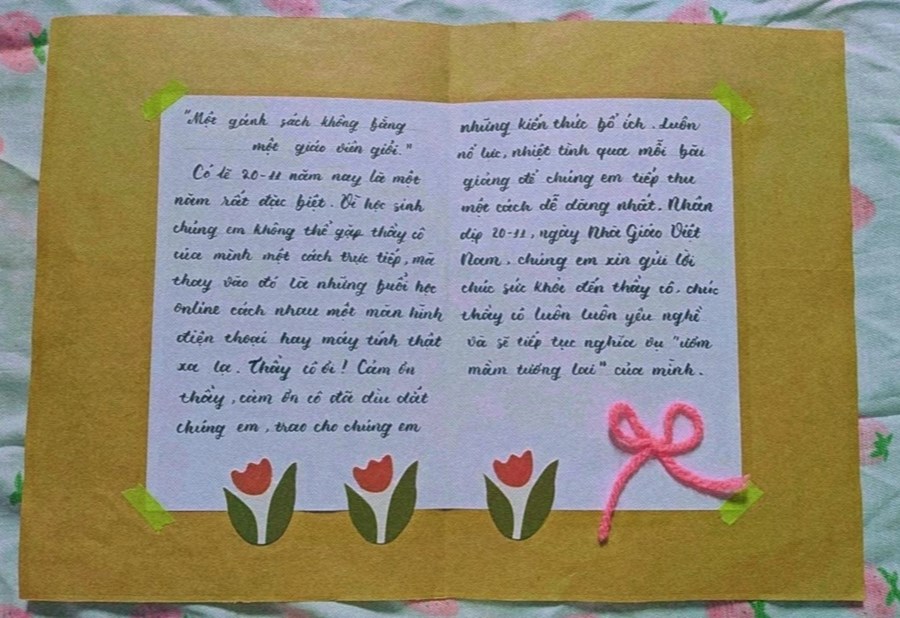 "Một gánh sách không bằng
một giáo viên giỏi."
Có lẽ 20-11 năm nay là một
năm rất đặc biệt. Vì học sinh
chúng em không thể gặp thầy cô
của mình một cách trực tiếp, mà
thay vào đó là những buổi học
online cách nhau một màn hình
điện thoại hay máy tính thật
xa lạ. Thầy cô ơi! Cảm ơn
thầy, cảm ơn cô đã dìu dắt
chúng em, trao cho chúng em
những kiến thức bổ ích. Luôn
nỗ lực, nhiệt tình qua mỗi bài
giảng để chúng em tiếp thu
một cách dễ dàng nhất. Nhân
dịp 20-11, ngày Nhà Giáo Việt
Nam, chúng em xin gửi lời
chúc sức khỏe đến thầy cô, chúc
thầy cô luôn luôn yêu nghề
và sẽ tiếp tục nghĩa vụ "ươm
mầm tương lai" của mình.